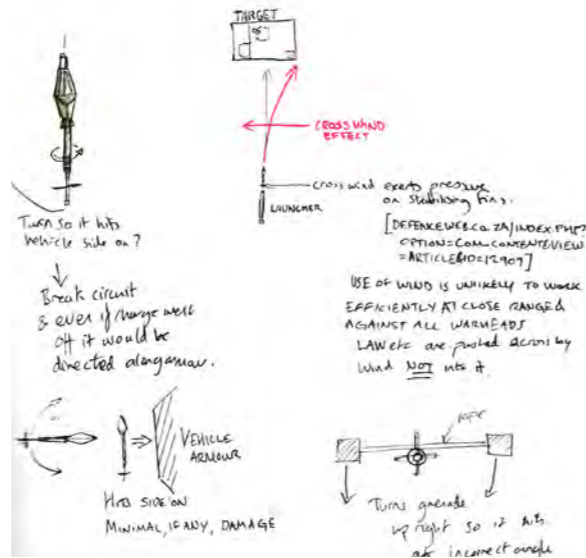 TARGET
CROSS WIND
EFFECT
Cross wind exerts pressure
on stabilising fins.
LAUNCHER
[DEFENCEWEB.CO.ZA/INDEX.PHP?
OPTION=COM_CONTENT&VIEW
=ARTICLE&ID=12907]
USE OF WIND IS UNLIKELY TO WORK
EFFICIENTLY AT CLOSE RANGE &
AGAINST ALL WARHEADS
LAW etc are pushed across by
wind NOT into it
Turn so it hits
vehicle side on?
Break circuit
& even if charge went
off it would be
directed along armour.
VEHICLE
ARMOUR
HITS SIDE ON
MINIMAL, IF ANY, DAMAGE
ROPE
Turns grenade
up right so it hits
at incorrect angle